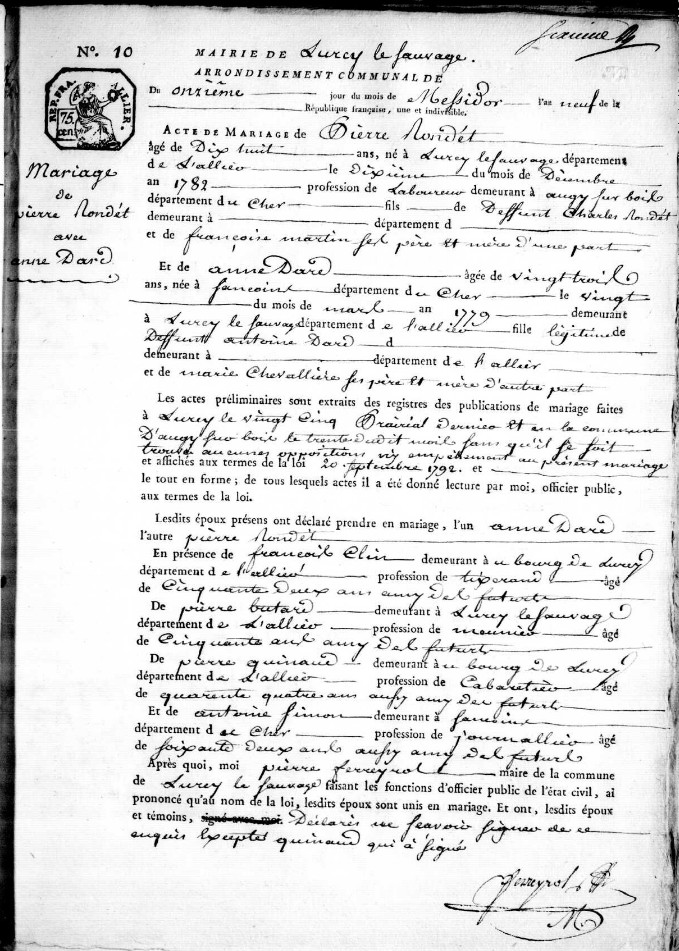 N°. 10
MAIRIE DE Lurcy le Sauvage.
ARRONDISSEMENT COMMUNAL DE
REP. FRA. ALLIER.
75. cen.
Du onzième jour du mois de Messidor l'an neuf de la
République française, une et indivisible.
Mariage
de
pierre Rondét
avec
anne Dard
ACTE DE MARIAGE DE Pierre Rondét
âgé de Dix huit ans, né à Lurcy le sauvage, département
de L'allier le Dixième du mois de Décembre
an 1782 profession de Laboureur demeurant à augy sur bois
département du Cher fils de Deffunt Charles Rondét
demeurant à département d
et de françoise martin ses père et mère d'une part
Et de anne Dard âgée de vingt trois
ans, née à Sancoins département du Cher le vingt
du mois de mars an 1779 demeurant
à Lurcy le Sauvage département de l'allier fille légitime de
Deffunt antoine Dard d
demeurant à département de l'allier
et de marie Chevallière ses père et mère d'autre part
Les actes préliminaires sont extraits des registres des publications de mariage faites
à Lurcy le vingt Cinq Prairial dernier et en la commune
D'augy sur bois le trente dudit mois sans qu'il se soit
trouvé aucunes oppositions ny empêchement au présent mariage
et affichés aux termes de la loi 20. septembre 1792. et
le tout en forme; de tous lesquels actes il a été donné lecture par moi, officier public,
aux termes de la loi.
Lesdits époux présens ont déclaré prendre en mariage, l'un anne Dard
l'autre pierre Rondét
En présence de francois Clin demeurant à u bourg de Lurcy
département de l'allié profession de tixerand âgé
de Cinquante deux ans amy des futurs
De pierre butard demeurant à Lurcy le Sauvage
département de L'allier profession de meunier âgé
de Cinquante ans amy des futurs
De pierre quinaud demeurant à u bourg de Lurcy
département de L'allier profession de Cabaretier âgé
de quarente quatre ans aussy amy des futurs
Et de antoine Simon demeurant à Sancoins
département du Cher profession de journallier âgé
de soixante deux ans aussy amy des futurs
Après quoi, moi pierre ferreyrol maire de la commune
de Lurcy le Sauvage faisant les fonctions d'officier public de l'état civil, ai
prononcé qu'au nom de la loi, lesdits époux sont unis en mariage. Et ont, lesdits époux
et témoins, signé avec moi. Déclarés ne scavoir signer de ce
enquis Excepté quinaud qui à signé
ferreyrol
M.